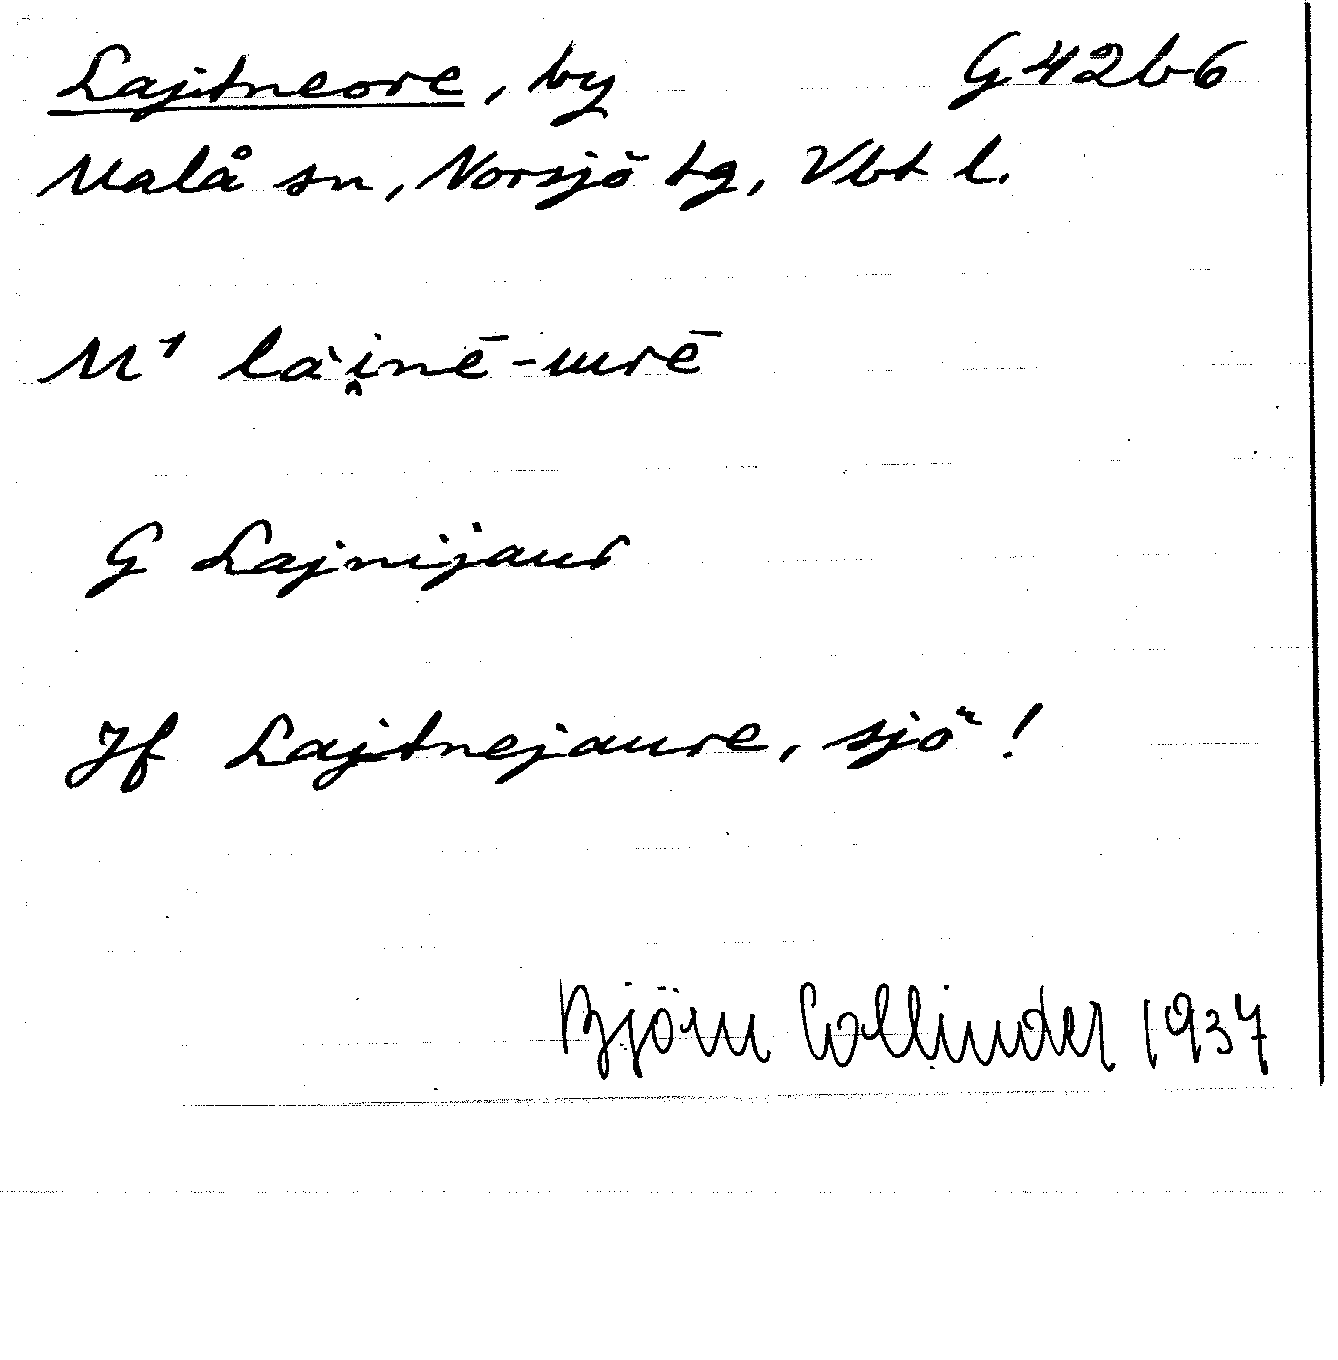 Lajtneore, by G 42b6
Malå sn, Norsjö tg, Vbt l.
M¹ lài̯nē-urē
G Lajnijaur
Jf Lajtnejaure, sjö !
Björn Collinder 1937